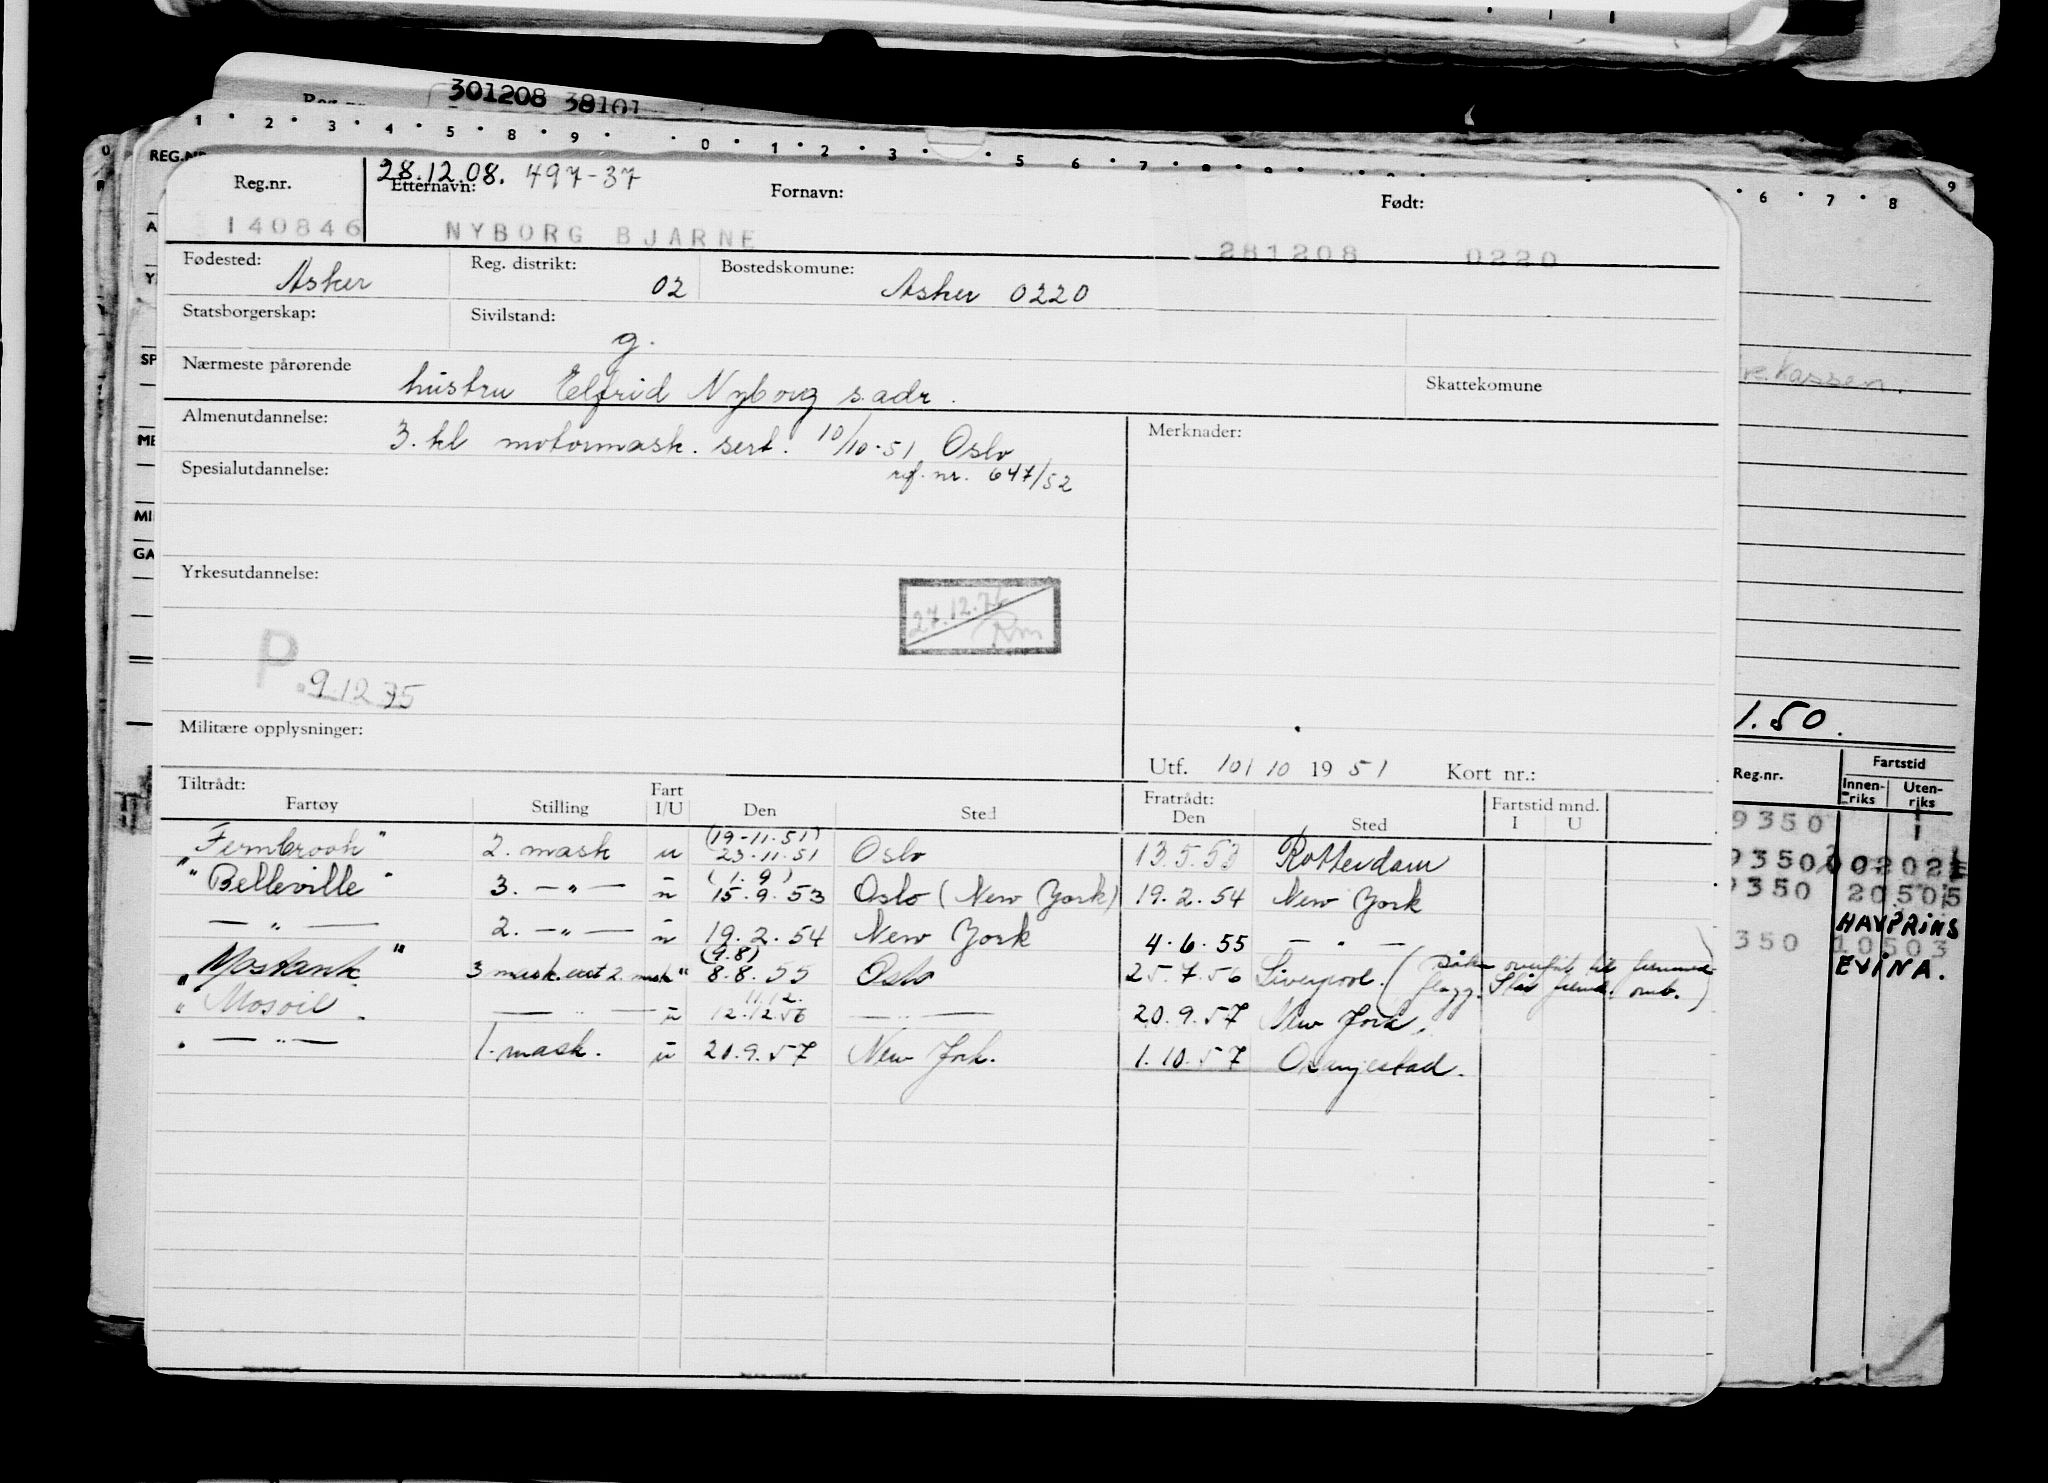 301208 38101
1 2 3 4 5 8 9 0 1 2 3 5 6 7
REG.NR
28.12.08. 497-37
Reg.nr. Etternavn: Fornavn: Født:
140846 NYBORG BJARNE 281208 0220
Fødested: Asker Reg. distrikt: 02 Bostedskomune: Asker 0220
Statsborgerskap: Sivilstand: g.
Nærmeste pårørende hustru Elfrid Nyborg s.adr. Skattekomune
Almenutdannelse: 3. kl motormask. sert. 10/10-51 Oslo Merknader:
Spesialutdannelse: ref. nr. 647/52
Yrkesutdannelse:
27.12.76
P. 9.12 75
Militære opplysninger:
Utf. 10/10 1951 Kort nr.:
Tiltrådt: Fratrådt: Fartstid mnd.
Fartøy Stilling Fart I/U Den Sted Den Sted I U
Fernbrook" 2. mask u (19-11.51) 23.11.51 Oslo 13.5.53 Rotterdam
"Belleville" 3. — " — u (1.9) 15.9.53 Oslo (New York) 19.2.54 New York
— " — 2. — " — u 19.2.54 New York 4.6.55 — " —
"Mostank" 3 mask. 2. mask " (9.8) 8.8.55 Oslo 25.7.56 Liverpool. (
"Mosoil. — " — u 11.12. 12.12.56 — " — 20.9.57 New York.
— " — 1. mask. u 20.9.57 New York. 1.10.57 Oranjestad.
1.50.
Reg.nr. Fartstid
Innen-riks Uten-riks
9350
9350
9350 20505
HAVPRINS
350 10503
EVINA.